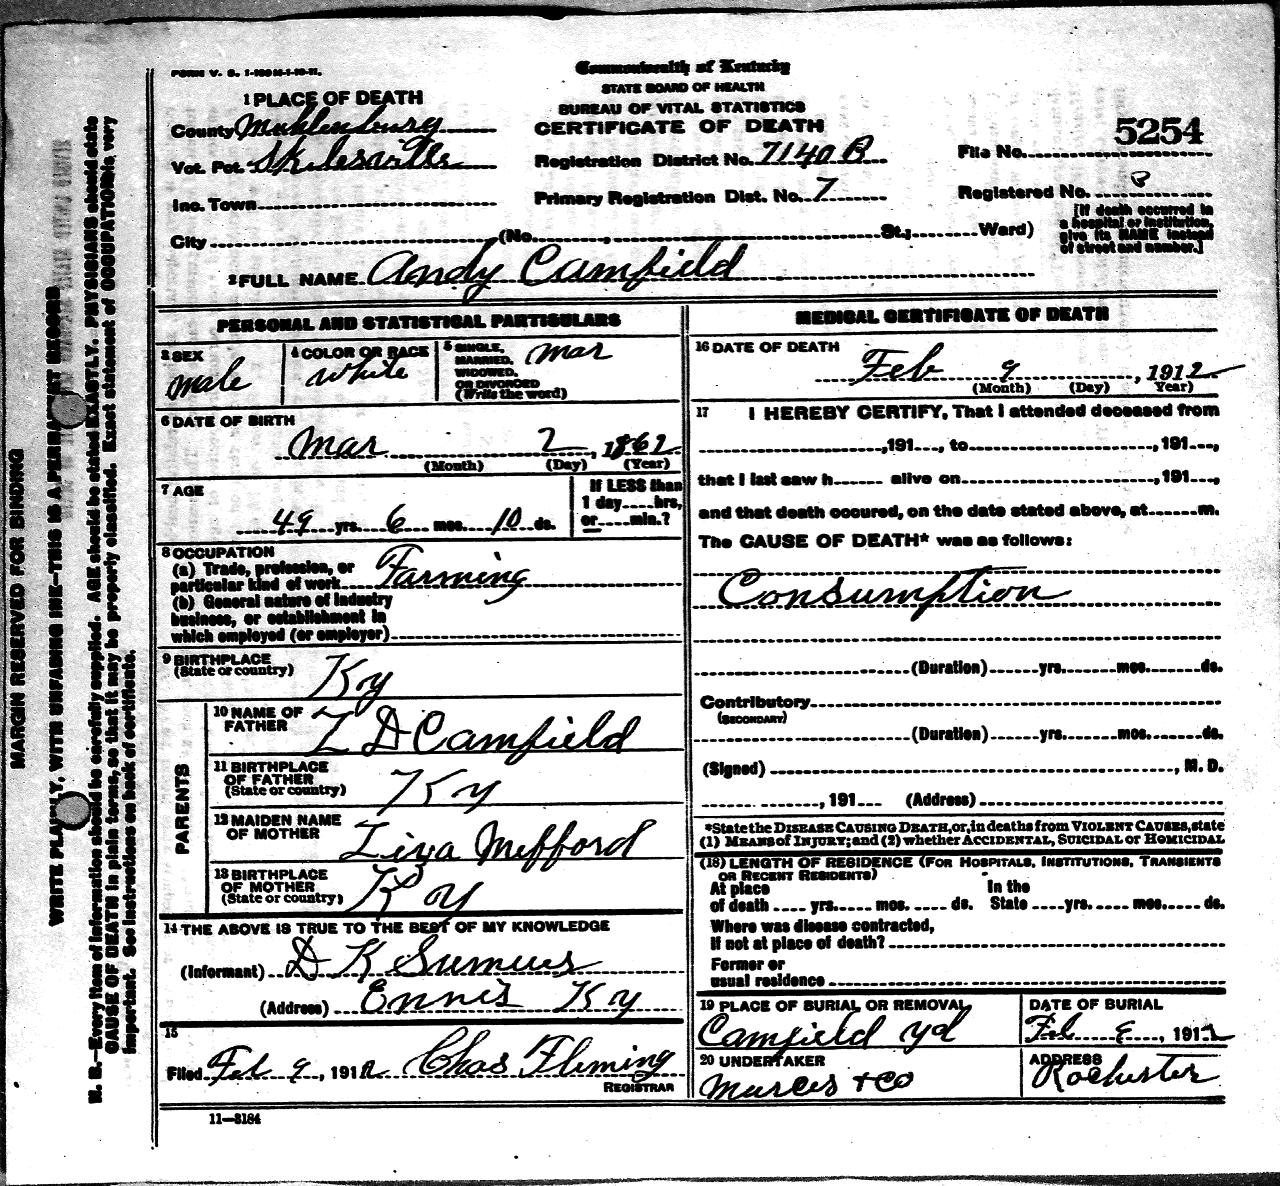 FORM V. S. 1-
Commonwealth of Kentucky
STATE BOARD OF HEALTH
BUREAU OF VITAL STATISTICS
CERTIFICATE OF DEATH
1 PLACE OF DEATH
County Muhlenburg
Vot. Pct. Skilesville
Inc. Town
City (No. , St.; Ward)
Registration District No. 7140 B
Primary Registration Dist. No. 7
5254
File No.
Registered No. 8
[If death occurred in
a hospital or institution,
give its NAME instead
of street and number.]
2 FULL NAME Andy Camfield
PERSONAL AND STATISTICAL PARTICULARS
3 SEX
male
4 COLOR OR RACE
White
5 SINGLE,
MARRIED,
WIDOWED,
OR DIVORCED
(Write the word)
mar
6 DATE OF BIRTH
Mar 2, 1862
(Month) (Day) (Year)
7 AGE
49 yrs. 6 mos. 10 ds.
If LESS than
1 day hrs,
or min.?
8 OCCUPATION
(a) Trade, profession, or
particular kind of work Farming
(b) General nature of industry
business, or establishment in
which employed (or employer)
9 BIRTHPLACE
(State or country)
Ky
PARENTS
10 NAME OF
FATHER
Z D Camfield
11 BIRTHPLACE
OF FATHER
(State or country)
Ky
12 MAIDEN NAME
OF MOTHER
Mefford
13 BIRTHPLACE
OF MOTHER
(State or country)
Ky
14 THE ABOVE IS TRUE TO THE BEST OF MY KNOWLEDGE
(Informant) D K
(Address) Ennis Ky
15
Filed Feb 9, 1912 Chas Fleming
REGISTRAR
11—3184
MEDICAL CERTIFICATE OF DEATH
16 DATE OF DEATH
Feb 9, 1912
(Month) (Day) Year)
17 I HEREBY CERTIFY, That I attended deceased from
,191 , to , 191 ,
that I last saw h alive on , 191 ,
and that death occured, on the date stated above, at m.
The CAUSE OF DEATH* was as follows:
Consumption
(Duration) yrs. mos. ds.
Contributory
(SECONDARY)
(Duration) yrs. mos. ds.
(Signed) , M. D.
, 191 (Address)
*State the DISEASE CAUSING DEATH, or, in deaths from VIOLENT CAUSES, state
(1) MEANS of INJURY; and (2) whether ACCIDENTAL, SUICIDAL or HOMICIDAL
(18) LENGTH OF RESIDENCE (FOR HOSPITALS, INSTITUTIONS, TRANSIENTS
OR RECENT RESIDENTS)
At place In the
of death yrs. mos. ds. State yrs. mos. ds.
Where was disease contracted,
If not at place of death?
Former or
usual residence
19 PLACE OF BURIAL OR REMOVAL
Camfield yd
DATE OF BURIAL
Feb 9, 1912
20 UNDERTAKER
+ Co
ADDRESS
Rochester
MARGIN RESERVED FOR BINDING
WRITE PLAINLY, WITH UNFADING INK—THIS IS A PERMANENT RECORD
N. B.—Every item of information should be carefully supplied. AGE should be stated EXACTLY. PHYSICIANS should state
CAUSE OF DEATH in plain terms, so that it may be properly classified. Exact statement of OCCUPATION is very
important. See instructions on back of certificate.